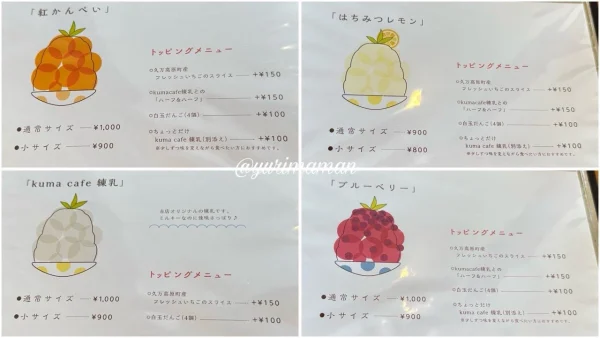 「紅かんぺい」
トッピングメニュー
○久万高原町産
フレッシュいちごのスライス ＋¥150
○kumacafe練乳との
「ハーフ&ハーフ」 ＋¥150
○白玉だんご(4個) ＋¥100
○ちょっとだけ
kuma cafe 練乳(別添え) ＋¥100
●通常サイズ ¥1,000
●小サイズ ¥900
「はちみつレモン」
トッピングメニュー
○久万高原町産
フレッシュいちごのスライス ＋¥150
○kumacafe練乳との
「ハーフ&ハーフ」 ＋¥150
○白玉だんご(4個) ＋¥100
○ちょっとだけ
kuma cafe 練乳(別添え) ＋¥100
●通常サイズ ¥900
●小サイズ ¥800
@yurimaman
「kuma cafe 練乳」
当店オリジナルの練乳です。
ミルキーなのに後味さっぱり♪
トッピングメニュー
○久万高原町産
フレッシュいちごのスライス ＋¥150
○白玉だんご(4個) ＋¥100
●通常サイズ ¥1,000
●小サイズ ¥900
「ブルーベリー」
トッピングメニュー
○久万高原町産
フレッシュいちごのスライス ＋¥150
○kumacafe練乳との
「ハーフ&ハーフ」 ＋¥150
○白玉だんご(4個) ＋¥100
○ちょっとだけ
kuma cafe 練乳(別添え) ＋¥100
●通常サイズ ¥1,000
●小サイズ ¥900